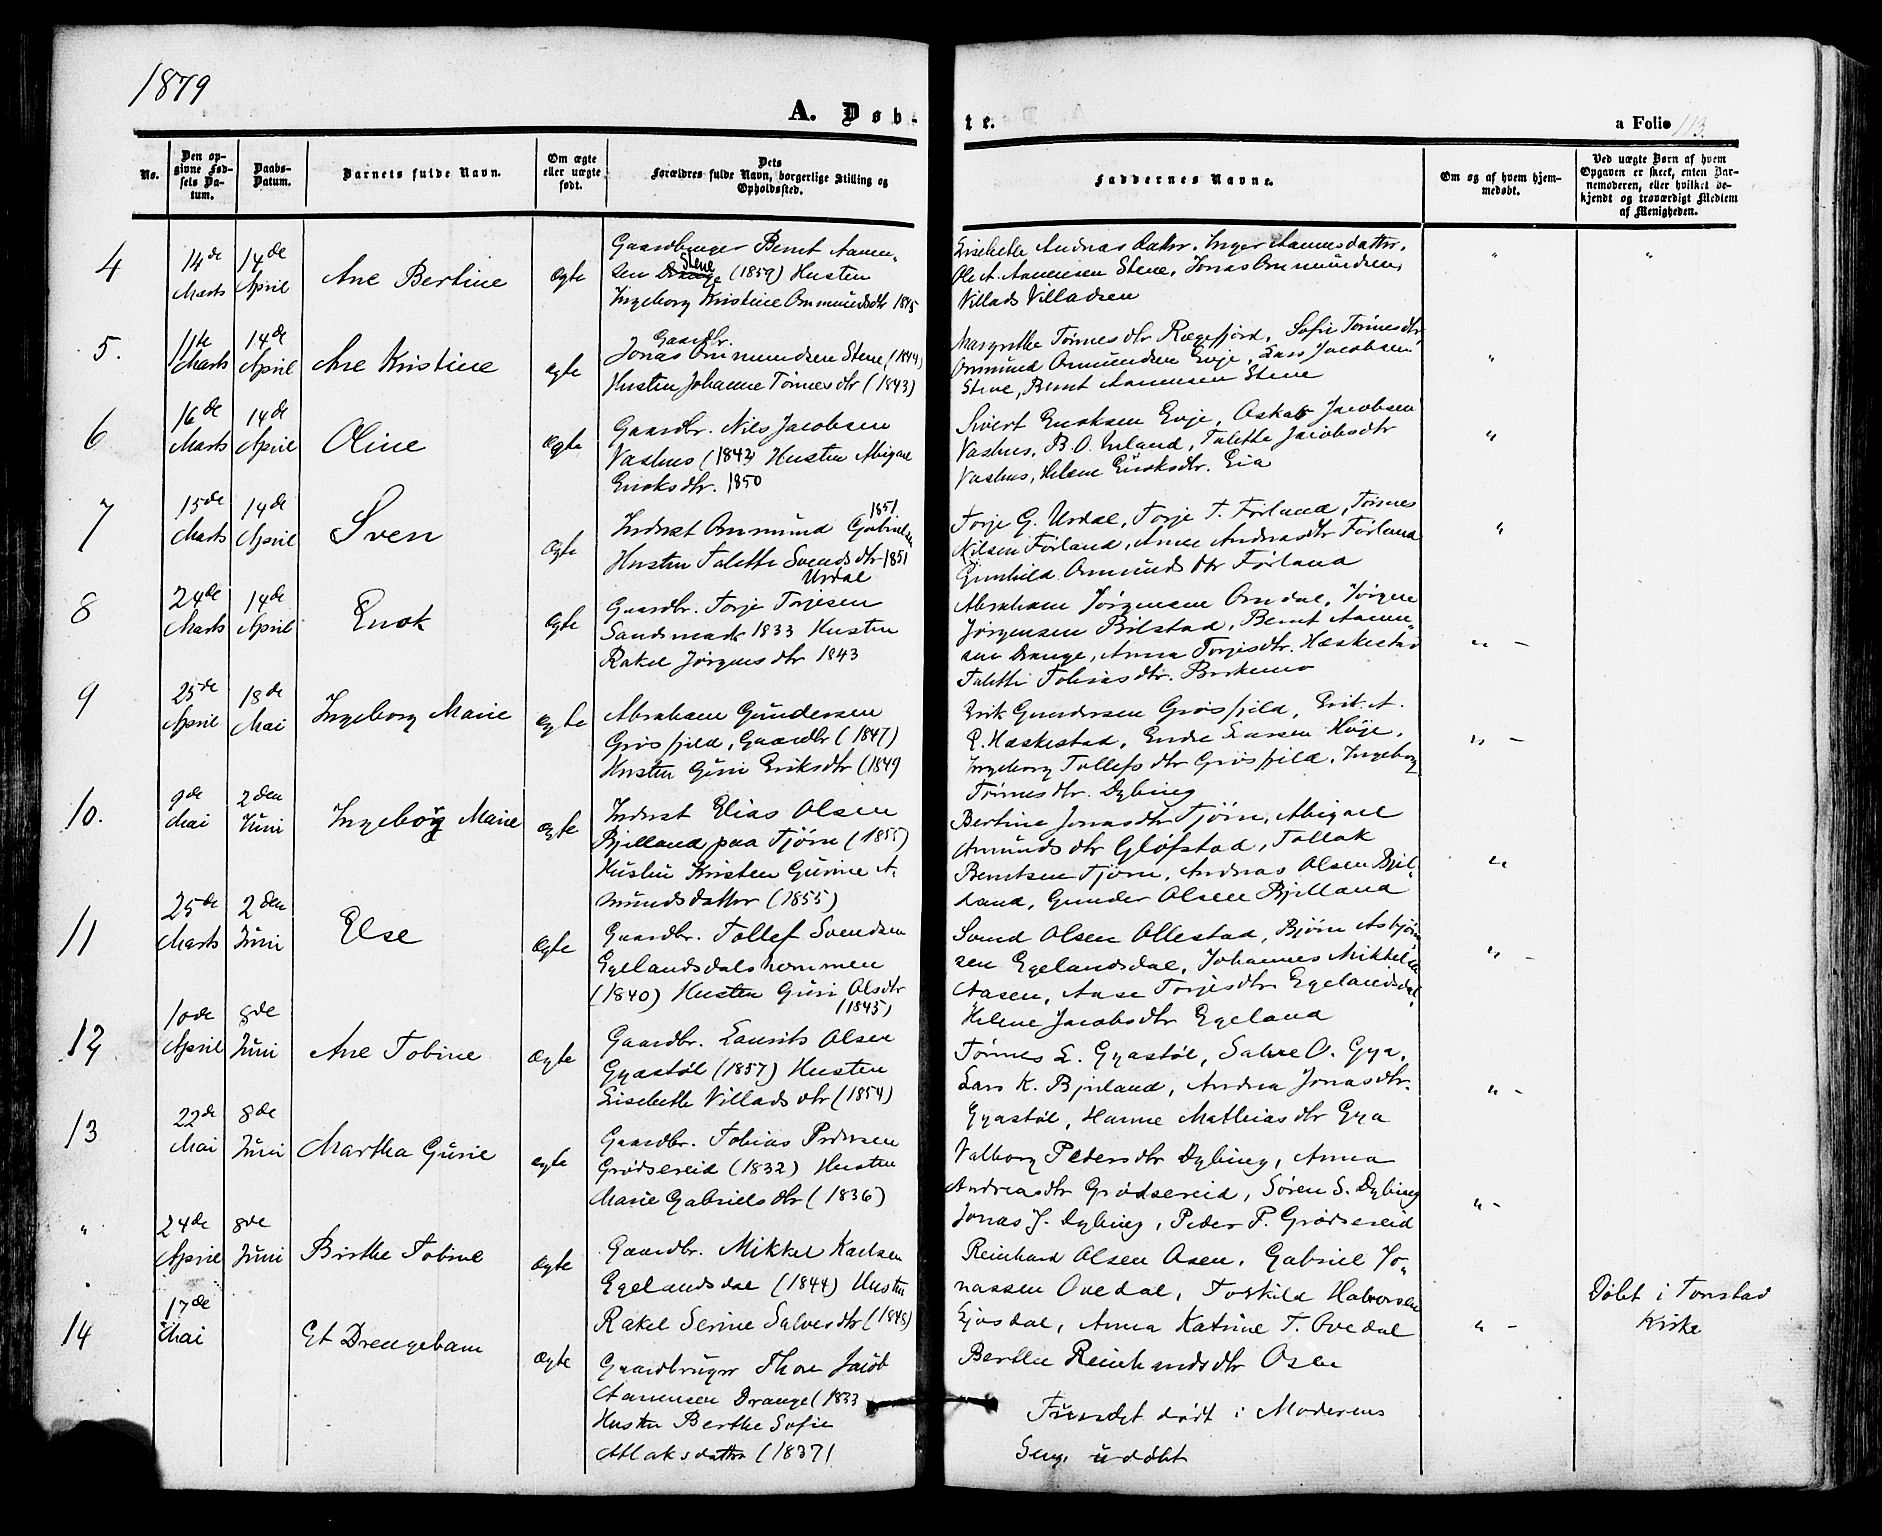 1879
A. Døb-
te.
a Folio 113
No.
Den op-
givne Fød-
sels Da-
tum.
Daabs-
Datum.
Barnets fulde Navn.
Om ægte
eller uægte
født.
Dets
Forældres fulde Navn, borgerlige Stilling og
Opholdssted.
Faddernes Navne.
Om og af hvem hjem-
medøbt.
Ved uægte Børn af hvem
Opgaven er skeet, enten Bar-
nemoderen, eller hvilket be-
kjendt og troværdigt Medlem
af Menigheden.
4
14de
Marts
14de
April
Ane Bertine
ægte
Gaardbruger Bernt Aanen-
sen Drange Stene (1859) Husten
Ingeborg Kristine Ommundsdtr 1845
Lisebethe Andreasdatter, Inger Aanensdatter,
Ole A. Aanensen Stene, Jonas Ommundsen,
Villads Villadsen
"
"
5.
11te
Marts
14de
April
Ane Kristine
ægte
Gaardbr.
Jonas Ommundsen Stene (1844)
Husten Johanne Tønnesdtr (1843)
Margrethe Tønnesdtr Rægefjord, Sofie Tønnesdtr
Ommund Ommundsen Eeje, Lars Jacobsen
Stene, Bernt Aanensen Stene
"
6
16de
Marts
14de
April
Oline
ægte
Gaardbr. Nils Jacobsen
Vashus (1842) Husten Abigael
Enoksdtr. 1850
Sivert Enoksen Eeje, Oskar Jacobsen
Vashus, B. O. Urland, Talette Jacobsdtr
Vashus, Helene Enoksdtr. Eia
"
7
15de
Marts
14de
April
Sven
ægte
1851
Inderst Ommund Gabrielsen
Husten Talette Svendsdtr 1851
Urdal
Torje G. Urdal, Torje T. Førland, Tønnes
Nilsen Førland, Anne Andreasdtr Førland
Gunhild Ommundsdtr Førland
"
8
24de
Marts
14de
April
Enok
ægte
Gaardbr. Torje Torjesen
Sandsmark 1833 Husten
Rakel Jørgensdtr 1843
Abraham Jørgensen Omdal, Jørgen
Jørgensen Bilstad, Bernt Aanen-
sen Drange, Anna Torjesdtr. Hæskestad
Talette Tobiasdtr. Birkemo
" -
9
25de
April
18de
Mai
Ingeborg Marie
ægte
Abraham Gundersen
Grøsfjeld, Gaardbr (1847)
Husten Guri Eriksdtr (1849
Erik Gundersen Grøsfjeld, Erik A.
P. Hæskestad, Endre Larsen Høje,
Ingeborg Tollefsdtr Grøsfjeld, Ingeborg
Tønnesdtr. Dybing
" -
10.
9de
Mai
2den
Juni
Ingeborg Marie
ægte
Inderst Elias Olsen
Bjelland paa Tjørn (1855)
Hustru Kristen Gurine A-
mundsdatter (1855)
Bertine Jonasdtr Tjørn, Abigael
Amundsdtr Gløfstad, Tollak
Berntsen Tjørn, Andreas Olsen Bjel-
land, Gunder Olsen Bjelland
"
11
25de
Marts
2den
Juni
Else
ægte
Gaardbr. Tollef Svendsen
Egelandsdalshommen
(1840) Husten Guri Olsdtr
(1845)
Svend Olsen Ollestad, Bjørn Asbjørn
sen Egelandsdal, Johannes Mikkelsen
Aasen, Aase Torjesdtr Egelandsdal,
Helene Jacobsdtr Egeland
" -
12
10de
April
8de
Juni
Ane Tobine
ægte
Gaardbr. Laurits Olsen
Gyastøl (1857) Husten
Lisebethe Villadsdtr (1854)
Tønnes L. Gyastøl, Salve O. Gya,
Lars K. Bjuland, Andrea Jonasdtr.
Gyastøl, Hanne Mathiasdtr Gya
" -
13
22de
Mai
8de
Juni
Martha Gurie
ægte
Gaardbr. Tobias Pedersen
Grødsereid (1832) Husten
Marie Gabrielsdtr (1836)
Valborg Pedersdtr Dybing, Anna
Andreasdtr Grødsereid, Søren S. Dybing
Jonas J. Dybing, Peder P. Grødsereid
" -
"
24de
April
8de
Juni
Birthe Tobine
ægte
Gaardbr. Mikkel Karlsen
Egelandsdal (1844) Husten
Rakel Serine Salvesdtr (1848)
Reinhard Olsen Osen, Gabriel Jo-
nassen Ovedal, Torkild Halvorsen
Gjosdal, Anna Katrine T. Ovedal
Berthe Reinhardsdtr Osen
" -
Døbt i Tonstad
Kirke
14
17de
Mai
Et Drengebarn
ægte
Gaardbruger Thore Jacob
Aanensen Drange (1833
Husten Berthe Sofie
Atlaksdatter (1837)
Fundet dødt i Moderens
Seng, udøbt